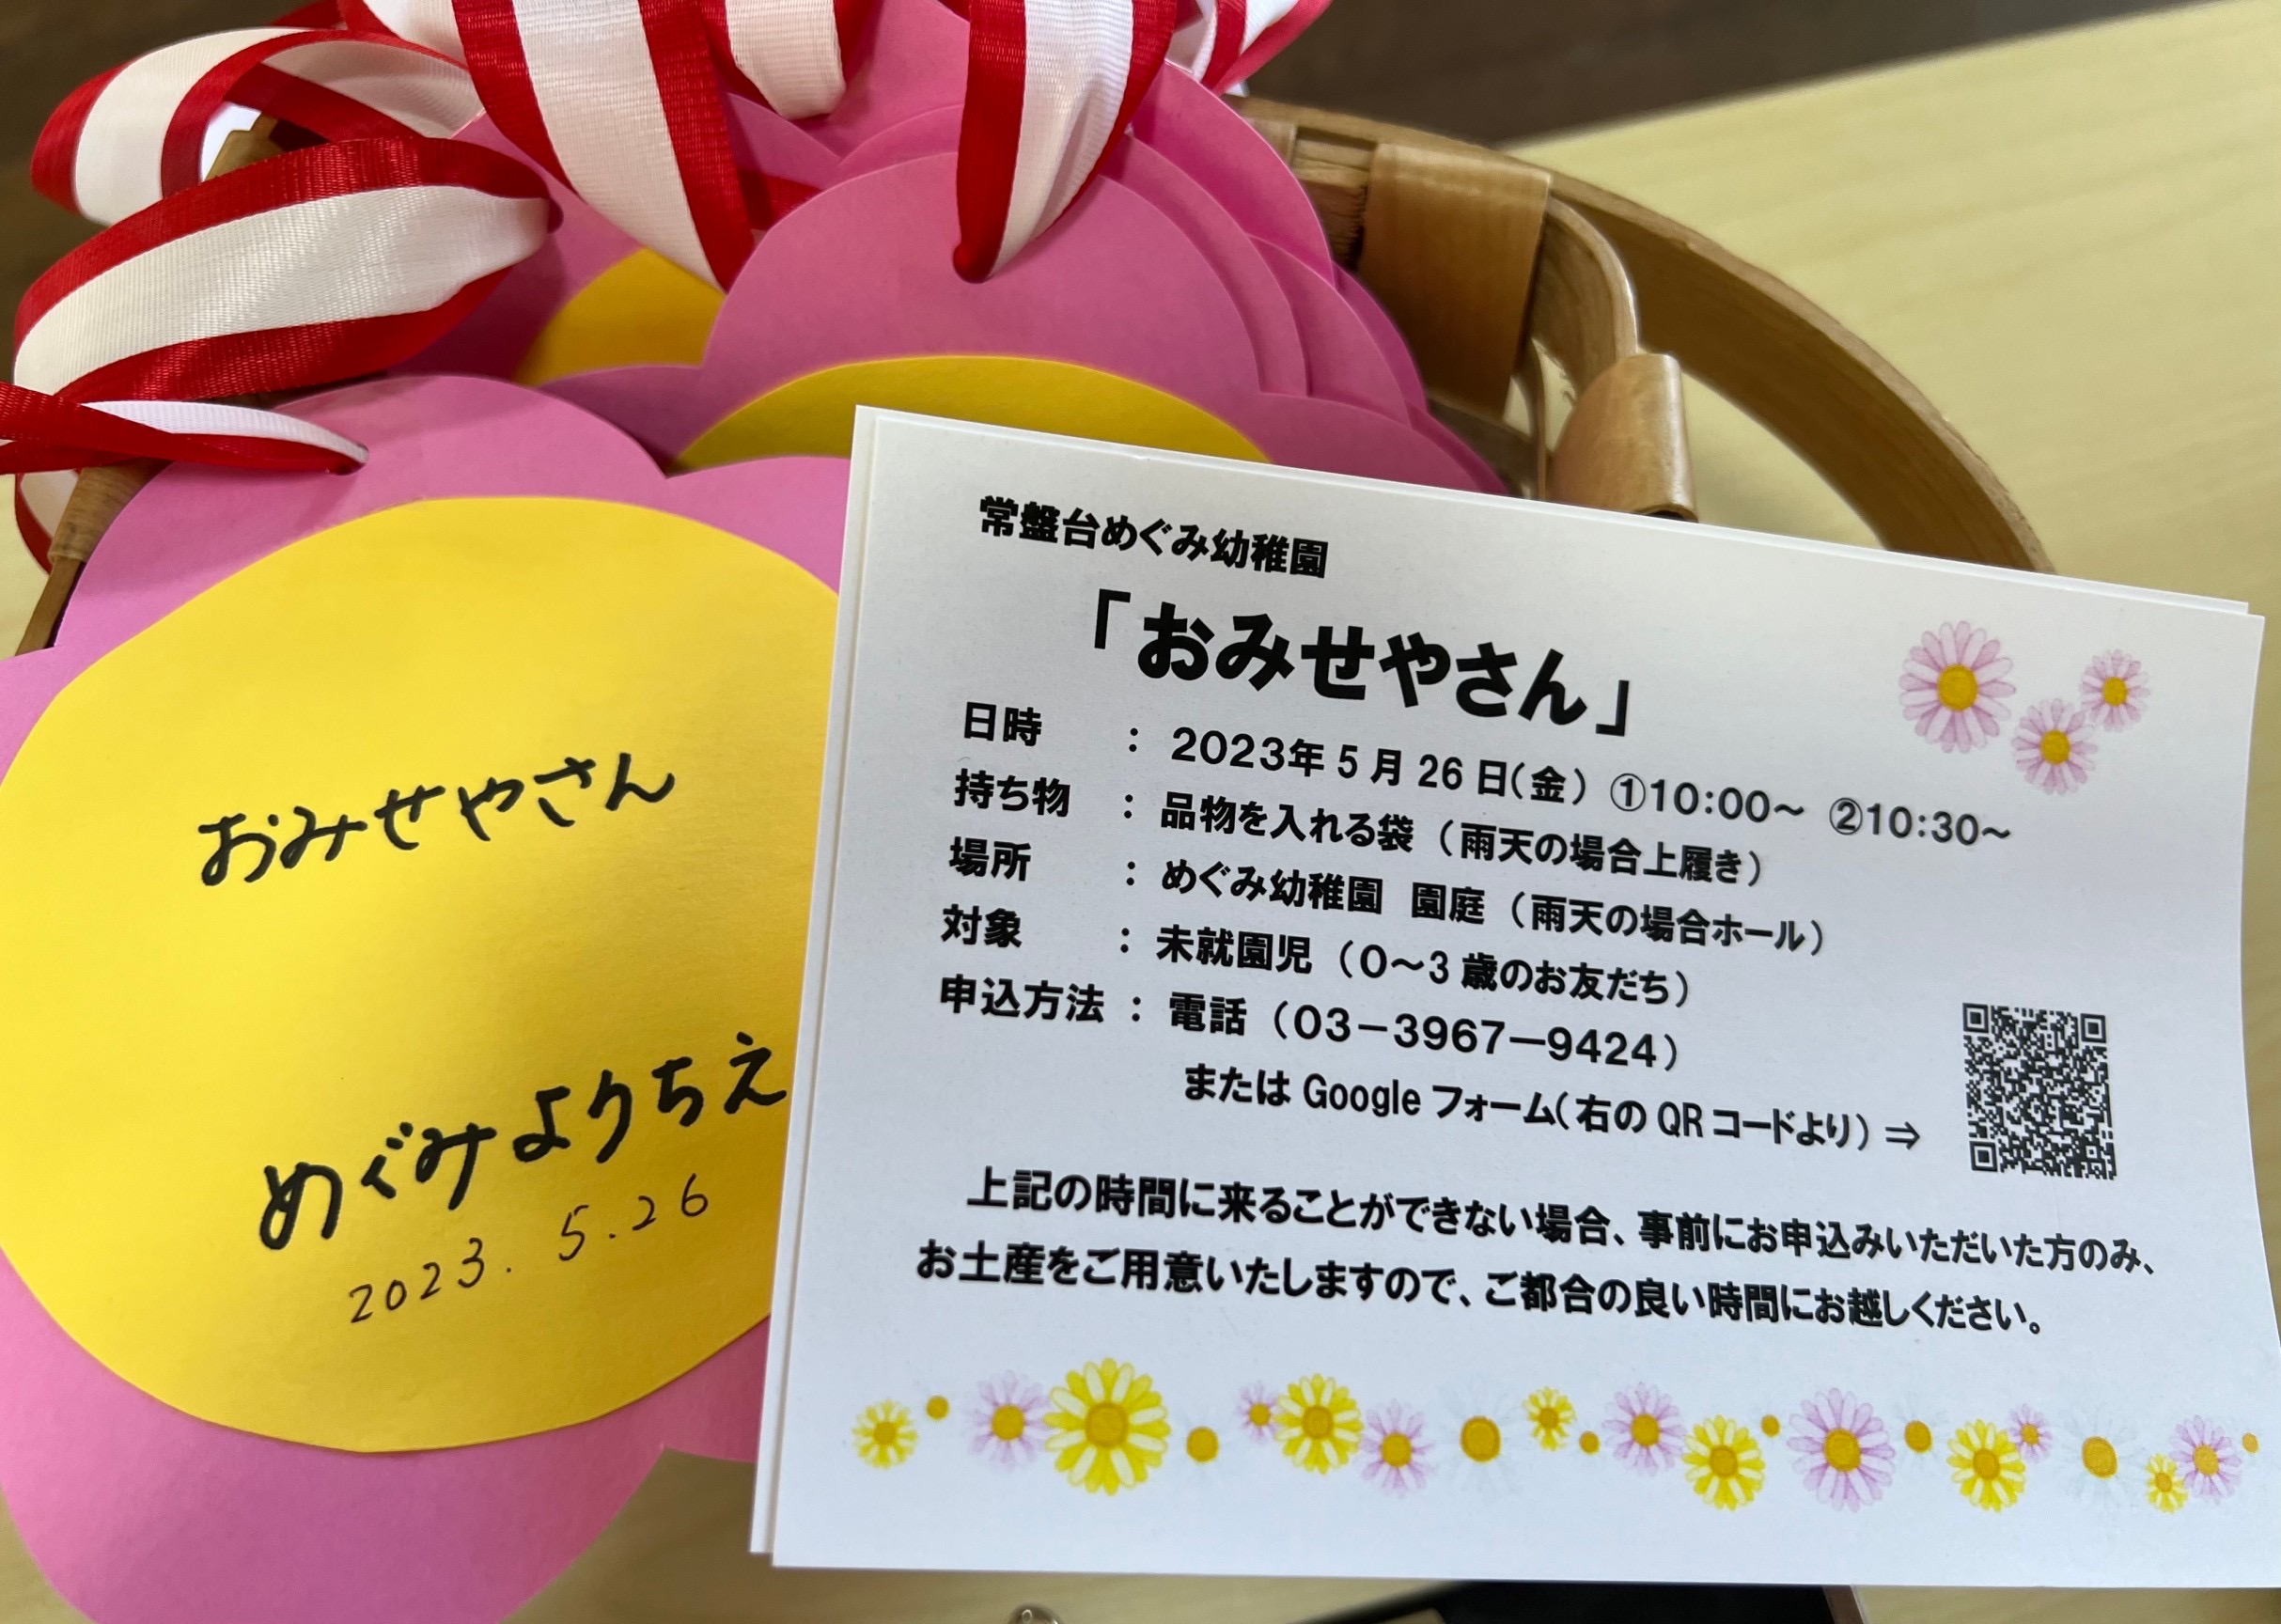 おみせやさん
めぐみようちえ
2023. 5.26
常盤台めぐみ幼稚園
「おみせやさん」
日時 : 2023年5月26日(金) ①10:00~ ②10:30~
持ち物 : 品物を入れる袋(雨天の場合上履き)
場所 : めぐみ幼稚園 園庭(雨天の場合ホール)
対象 : 未就園児(0~3歳のお友だち)
申込方法 : 電話(03-3967-9424)
または Google フォーム(右の QR コードより)⇒
上記の時間に来ることができない場合、事前にお申込みいただいた方のみ、
お土産をご用意いたしますので、ご都合の良い時間にお越しください。